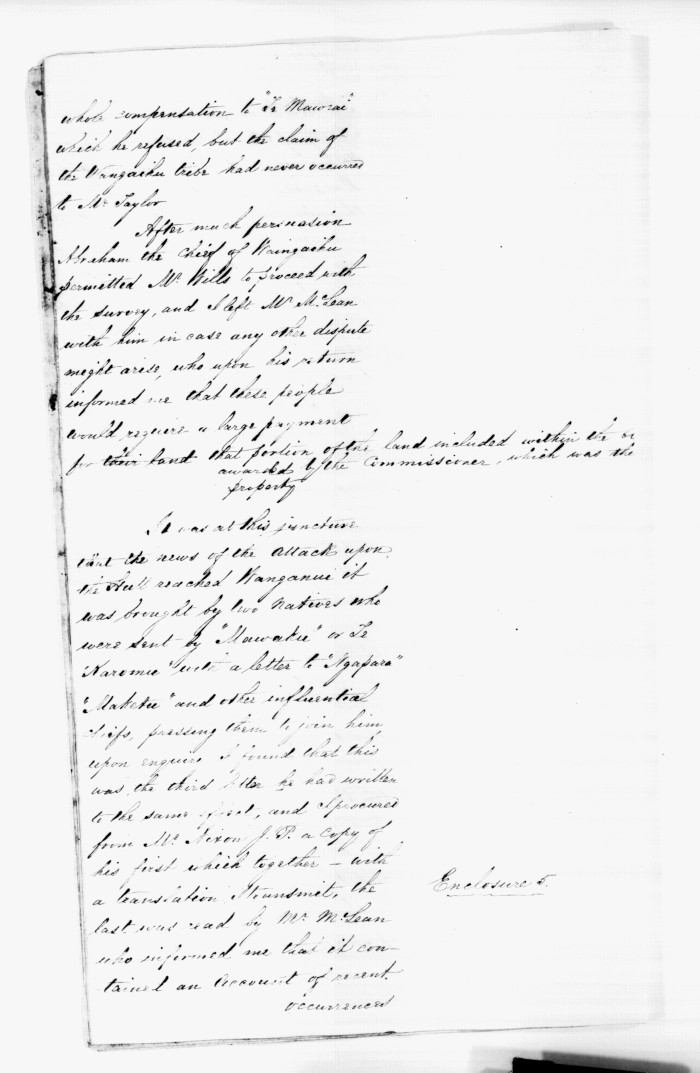 whole compensation to "Te Mawrai"
which he refused, but the claim of
the Wangaihu tribe had never occurred
to Mr Taylor
After much persuasion
Abraham the Chief of Waingaihu
permitted Mr Wills to proceed with
the survey, and I left Mr McLean
with him in case any other dispute
meght arise, who upon his return
informed me that these people
would require a large payment
for their land that portion of the land included within the
awarded by the Commissioner, which was the
property
It was at this juncture
that the news of the attack upon
the Hutt reached Wanganui it
was brought by two Natives who
were sent by "Mawaku" or Te
Karomu" with a letter to "Ngapara"
"Maketu" and other influential
Chiefs, pressing them to join him
upon enquiry I found that this
was the third letter he had written
to the same effect, and I procured
from Mr Nixon J.P. a Copy of
his first which together - with
a translation I transmit, the
Enclosure 5.
last was read by Mr McLean
who informed me that it con-
tained an Account of recent
occurrences